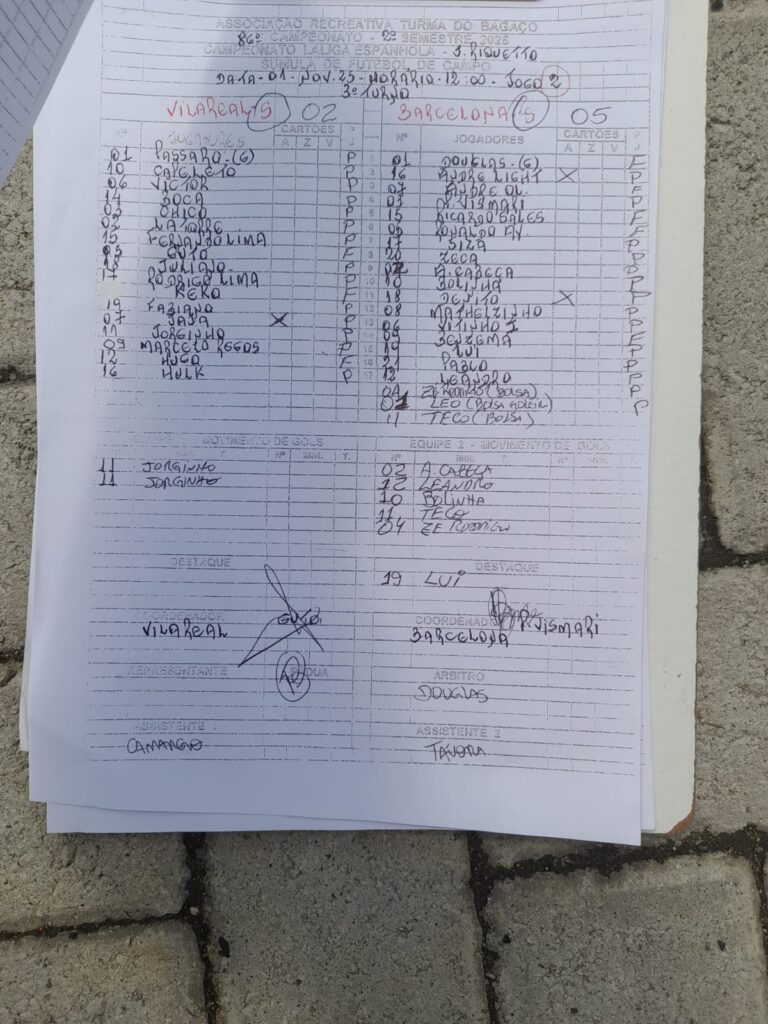 ASSOCIAÇÃO RECREATIVA TURMA DO BAGAÇO
86º CAMPEONATO - 2º SEMESTRE 2025
CAMPEONATO LALIGA ESPANHOLA - J. RIQUETTO
SUMULA DE FUTEBOL DE CAMPO
DATA - 01 - NOV - 25 - HORARIO - 12:00 - JOGO 2
3º TURNO
VILAREAL 5 02 BARCELONA 5 05
Nº JOGADORES CARTÕES P Nº JOGADORES CARTÕES P
A Z V J A Z V J
01 PASSARO-(G) P 1 01 DOUGLAS-(G) F
10 CAPELETO P 2 16 ANDRE LIGHT X P
06 VICTOR P 3 07 ANDRE OL. F
14 BOCA P 4 03 P. VISMARI P
03 CHICO P 5 15 RICARDO SALES
02 LATORRE P 6 05 RONALDO
15 FERNANDO LIMA P 7 17
05 GUTO F 8 20 ZECA
18 JULIANO P 9 02 A. CABECA
17 RODRIGO LIMA P 10 10 BOLINHA
KEKO F 11 18 DENITO X
19 FABIANO P 12 08 MATHEUZINHO
07 JAJA X P 13 06 VITINHO
11 JORGINHO P 14 09 BENZEMA
09 MARCELO REGOS P 15 19 LUI
12 HUGO F 16 21 PABLO
16 HULK P 17 12 LEANDRO
04 ZE RODRIGO (BOLSA)
01 LEO (BOLSA GOLEIR)
11 TECO (BOLSA)
EQUIPE 1 - MOVIMENTO DE GOLS EQUIPE 2 - MOVIMENTO DE GOLS
Nº MIN. T. Nº MIN. T.
11 JORGINHO 02 A CABEÇA
11 JORGINHO 12 LEANDRO
10 BOLINHA
11 TECO
04 ZE RODRIGO
DESTAQUE DESTAQUE
19 LUI
COORDENADOR COORDENADO
VILAREAL GUTO BARCELONA P. VISMARI
REPRESENTANTE ARBITRO
DOUGLAS
ASSISTENTE 1 ASSISTENTE 2
CAMARGO TAVORA